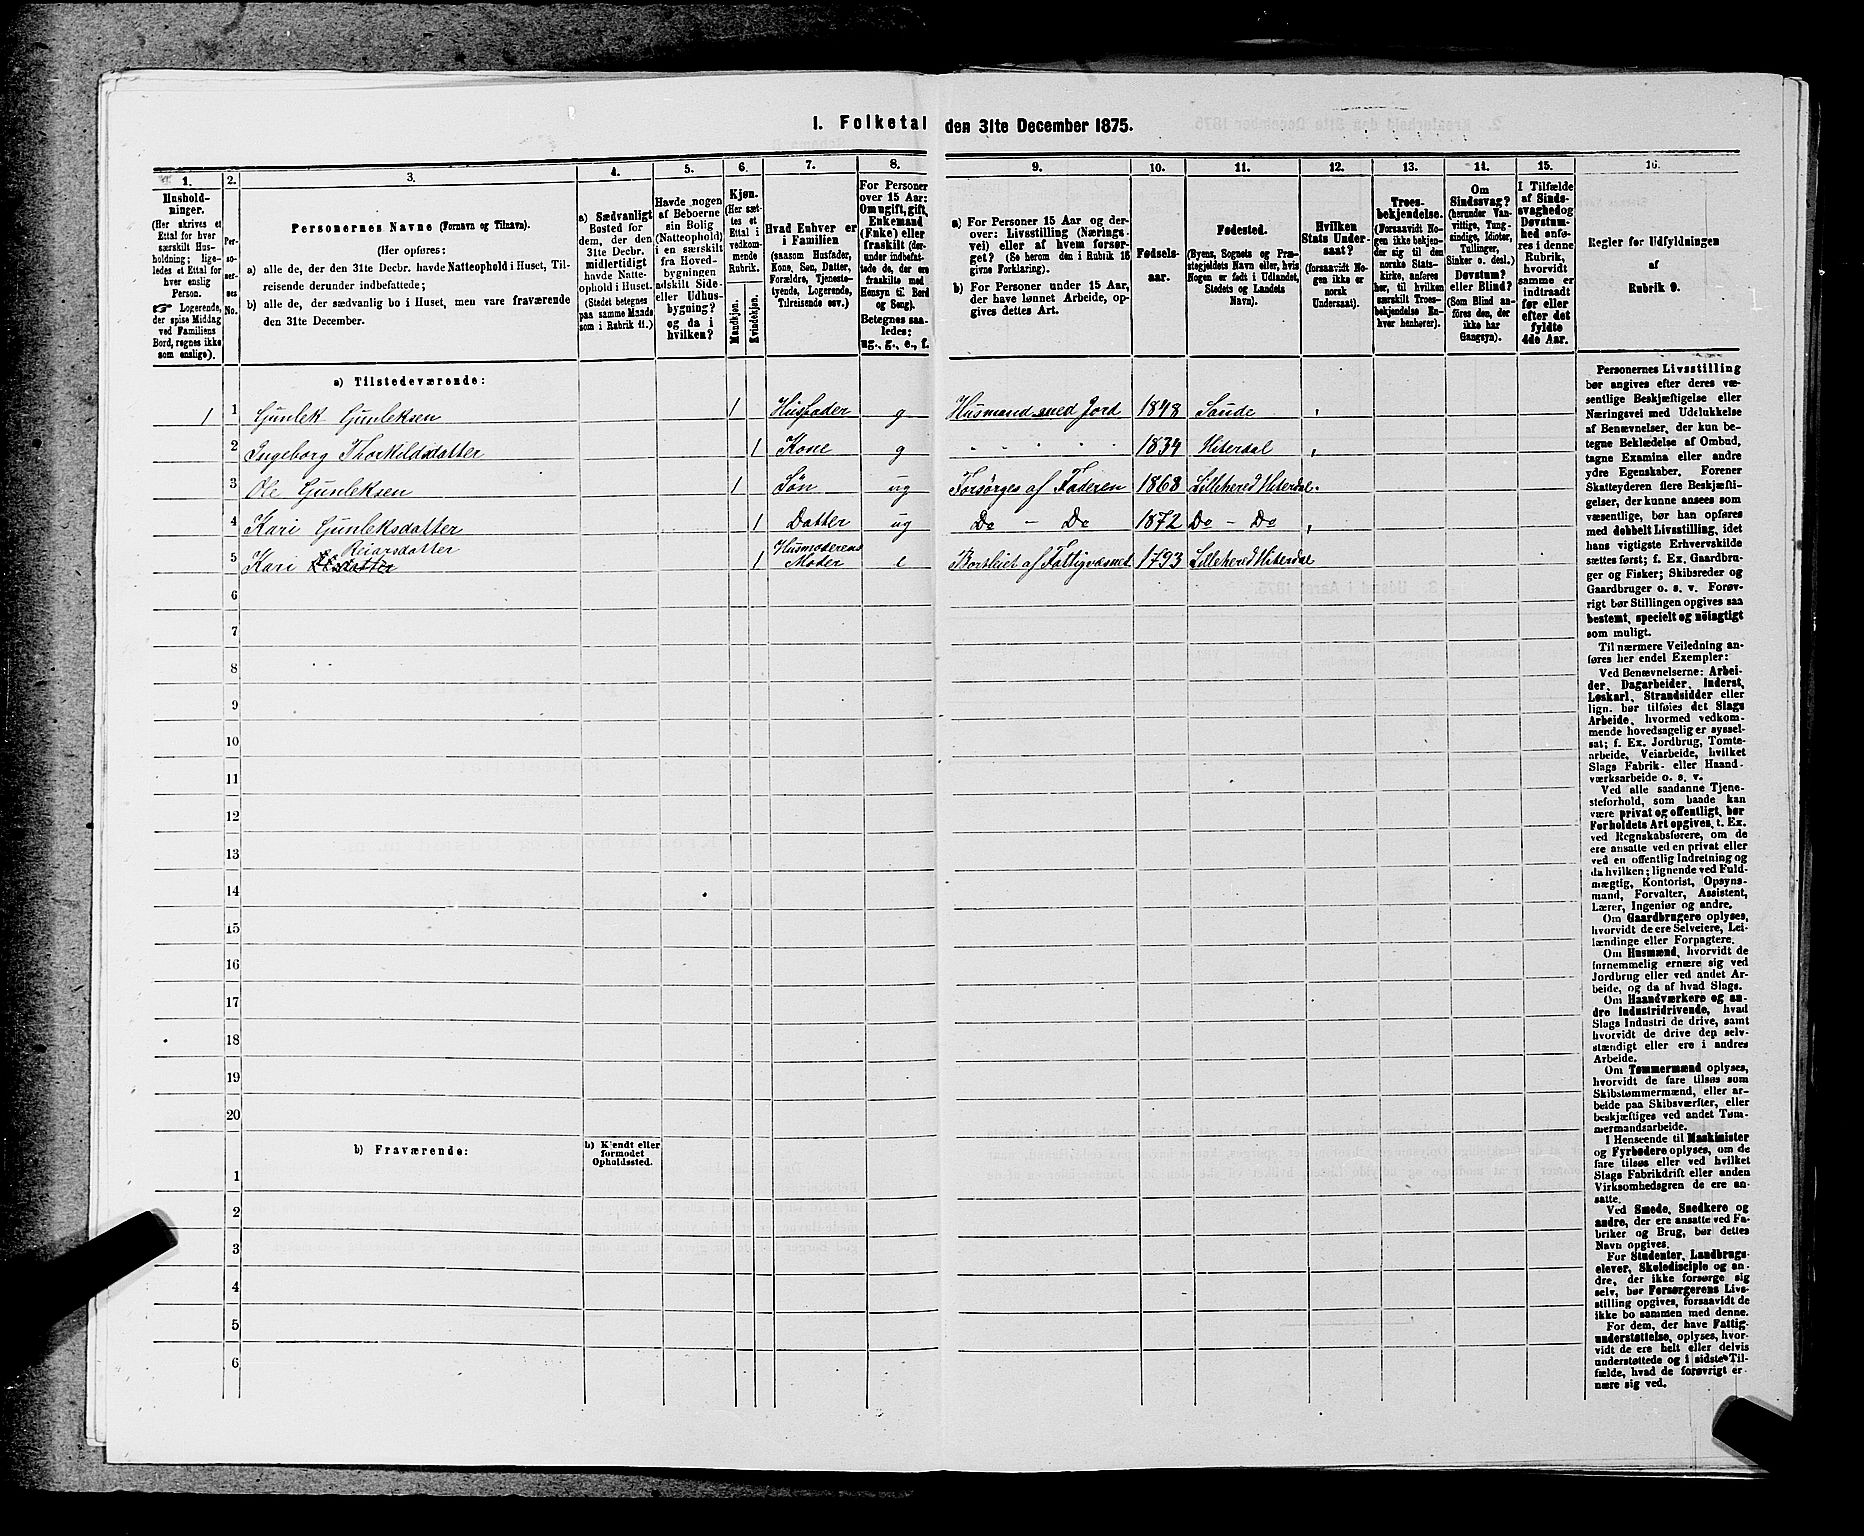 I. Folketal den 31te December 1875.
1. 2. 3. 4. 5. 6. 7. 8. 9. 10. 11. 12. 13. 14. 15. 16.
Husholdninger.
(Her skrives et
Ettal for hver
særskilt Husholdning;
ligeledes
et Ettal for
hver enslig
Person.
☞ Logerende,
der spise Middag
ved Familiens
Bord, regnes ikke
som enslige).
Personernes No.
Personernes Navne (Fornavn og Tilnavn).
(Her opføres:
a) alle de, der den 31te Decbr. havde Natteophold i Huset, Tilreisende
derunder indbefattede;
b) alle de, der sædvanlig bo i Huset, men vare fraværende
den 31te December.
a) Sædvanligt
Bosted for
dem, der den
31te Decbr.
midlertidigt
havde Natteophold
i Huset.
(Stedet betegnes
paa samme Maade
som i Rubrik 11.)
Havde nogen
af Beboerne
sin Bolig
(Natteophold)
i en særskilt
fra Hovedbygningen
adskilt Side-
eller Udhusbygning?
og da i
hvilken?
Kjøn.
(Her sættes
et
Ettal i
vedkommende
Rubrik.
Mandkjøn.
Kvindekjøn.
Hvad Enhver er
i Familien
(saasom Husfader,
Kone, Søn, Datter,
Forældre, Tjenestetyende,
Logerende,
Tilreisende osv.)
For Personer
over 15 Aar:
Om ugift, gift,
Enkemand
(Enke) eller
fraskilt (derunder
indbefattede
de, der ere
fraskilte med
Hensyn til Bord
og Seng).
Betegnes saaledes:
ug., g., e., f.
a) For Personer 15 Aar og derover:
Livsstilling (Næringsvei)
eller af hvem forsørget?
(Se herom den i Rubrik 16
givne Forklaring).
b) For Personer under 15 Aar,
der have lønnet Arbeide, opgives
dettes Art.
Fødselsaar.
Fødested.
(Byens, Sognets og Præstegjeldets
Navn eller, hvis
Nogen er født i Udlandet,
Stedets og Landets
Navn).
Hvilken
Stats Undersaat?
(forsaavidt Nogen
ikke er
norsk
Undersaat).
Troesbekjendelse.
(Forsaavidt Nogen
ikke bekjender
sig til den
norske Statskirke,
anføres
her, til hvilken
særskilt Troesbekjendelse
Enhver
henhører).
Om
Sindssvag?
(herunder Vanvittige,
Tungsindige,
Idioter,
Tullinger,
Sinker o. desl.)
Døvstum?
eller Blind?
(Som Blind anføres
den, der
ikke har
Gangsyn).
I Tilfælde
af Sindssvaghed
og
Døvstumhed
anføres
i denne
Rubrik,
hvorvidt
samme er
indtraadt
før eller
efter det
fyldte
4de Aar.
Regler for Udfyldningen
af
Rubrik 9.
a) Tilstedeværende:
1 1 Gunlek Gunleksen 1 Husfader g Husmand med Jord 1848 Saude
2 Ingeborg Thorkildsdatter 1 Kone g 1834 Hiterdal
3 Ole Gunleksen 1 Søn ug Forsørges af Faderen 1868 Lillehered Hiterdal
4 Kari Gunleksdatter 1 Datter ug Do - Do 1872 Do - Do
5 Kari Reiarsdatter 1 Husmoderens Moder e Bortleiet af Fattigvæsnet 1793 Lillehered Hiterdal
6
7
8
9
10
11
12
13
14
15
16
17
18
19
20
b) Fraværende:
b) Kjendt eller
formodet
Opholdssted.
1
2
3
4
5
6
Personernes Livsstilling
bør angives efter deres væsentlige
Beskjæftigelse eller
Næringsvei med Udelukkelse
af Benævnelser, der kun betegne
Beklædelse af Ombud,
tagne Examina eller andre
ydre Egenskaber. Forener
Skatteyderen flere Beskjæftigelser,
der kunne ansees som
væsentlige, bør han opføres
med dobbelt Livsstilling, idet
hans vigtigste Erhvervskilde
sættes først; f. Ex. Gaardbruger
og Fisker; Skibsreder og
Gaardbruger o. s. v. Forøvrigt
bør Stillingen opgives saa
bestemt, specielt og nöiagtigt
som muligt.
Til nærmere Veiledning anføres
her endel Exempler:
Ved Benævnelserne: Arbeider,
Dagarbeider, Inderst,
Løskarl, Strandsidder eller
lign. bør tilføies det Slags
Arbeide, hvormed vedkommende
hovedsagelig er sysselsat;
f. Ex. Jordbrug, Tomtearbeide,
Veiarbeide, hvilket
Slags Fabrik- eller Haandværksarbeide
o. s. v.
Ved alle saadanne Tjenesteforhold,
som baade kan
være privat og offentligt, bør
Forholdets Art opgives, t. Ex.
ved Regnskabsførere, om de
ere ansatte ved en privat eller
ved en offentlig Indretning og
da hvilken; lignende ved Fuldmægtig,
Kontorist, Opsynsmand,
Forvalter, Assistent,
Lærer, Ingeniør og andre.
Om Gaardbrugere oplyses,
hvorvidt de ere Selveiere, Leilændinge
eller Forpagtere.
Om Husmænd, hvorvidt de
fornemmelig ernære sig ved
Jordbrug eller ved andet Arbeide,
og da af hvad Slags.
Om Haandværkere og andre
Industridrivende, hvad
Slags Industri de drive, samt
hvorvidt de drive den selvstændigt
eller ere i andres
Arbeide.
Om Tømmermænd oplyses,
hvorvidt de fare tilsøs som
Skibstømmermænd, eller arbeide
paa Skibsværfter, eller
beskjæftiges ved andet Tømmermandsarbeide.
I Henseende til Maskinister
og Fyrbødere oplyses, om de
fare tilsøs eller ved hvilket
Slags Fabrikdrift eller anden
Virksomhedsgren de ere ansatte.
Ved Smede, Snedkere og
andre, der ere ansatte ved Fabriker
og Brug, bør dettes
Navn opgives.
For Studenter, Landbrugselever,
Skoledisciple og andre,
der ikke forsørge sig
selv, bør Forsørgerens Livsstilling
opgives, forsaavidt de
ikke bo sammen med denne.
For dem, der have Fattigunderstøttelse,
oplyses, hvorvidt
de ere helt eller delvis
understøttede og i sidste Tilfælde,
hvad de forøvrigt ernære
sig ved.